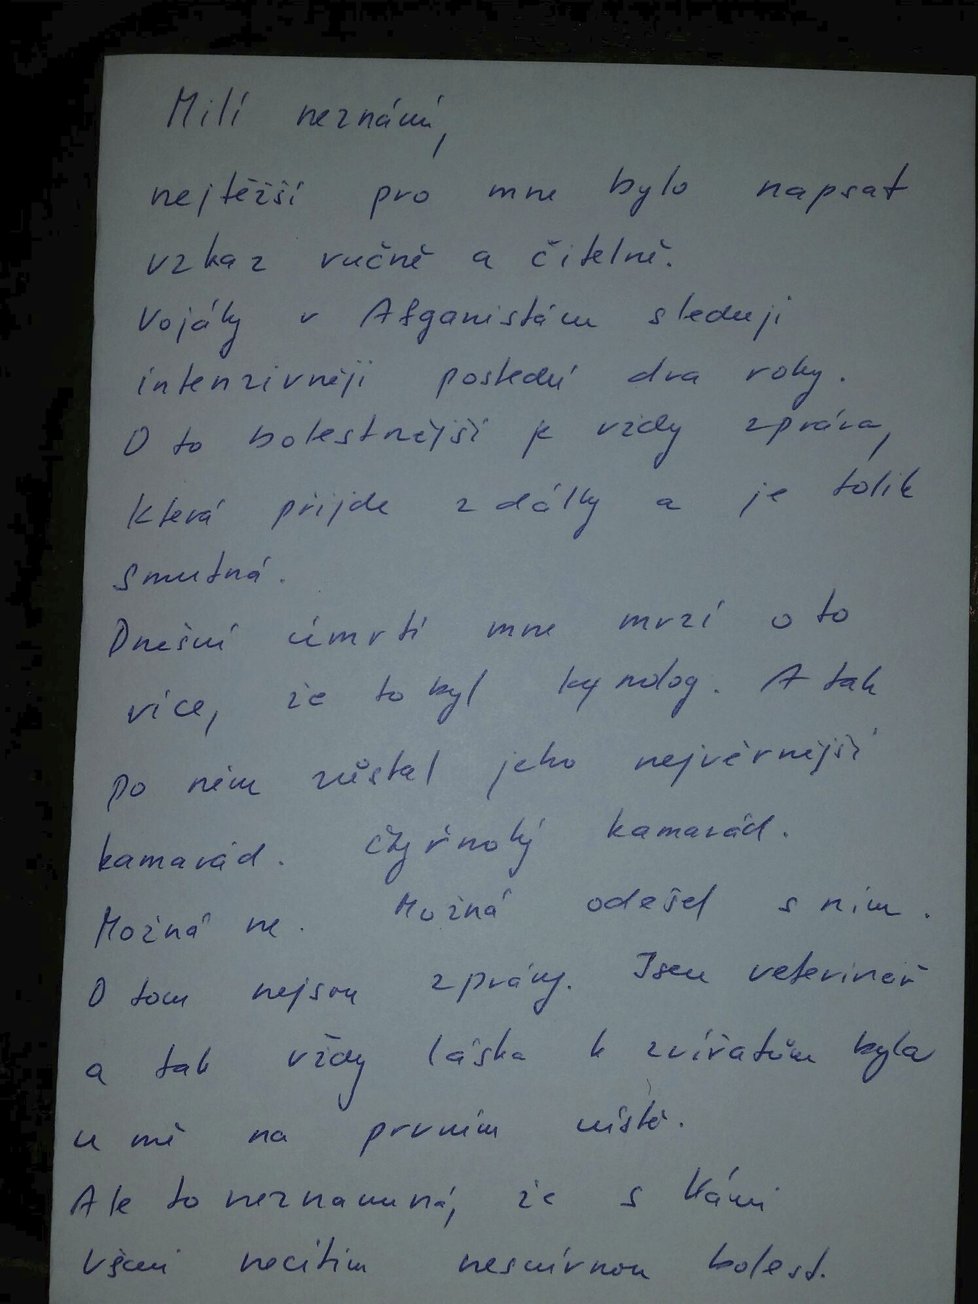 Milí neznámí,
nejtěžší pro mne bylo napsat
vzkaz ručně a čitelně.
Vojáky v Afganistánu sleduji
intenzivněji poslední dva roky.
O to bolestnější je vždy zpráva,
která přijde z dálky a je tolik
smutná.
Dnešní úmrtí mne mrzí o to
více, že to byl kynolog. A tak
po něm zůstal jeho nejvěrnější
kamarád. Čtyřnohý kamarád.
Možná ne. Možná odešel s ním.
O tom nejsou zprávy. Jsem veterinář
a tak vždy láska k zvířatům byla
u mě na prvním místě.
Ale to neznamená, že s Vámi
všemi necítím nesmírnou bolest.